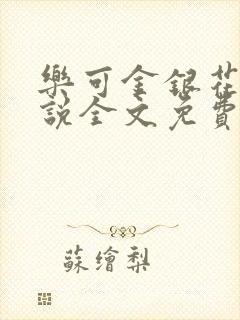 樂可金銀花
說全文免費
蘇繪梨